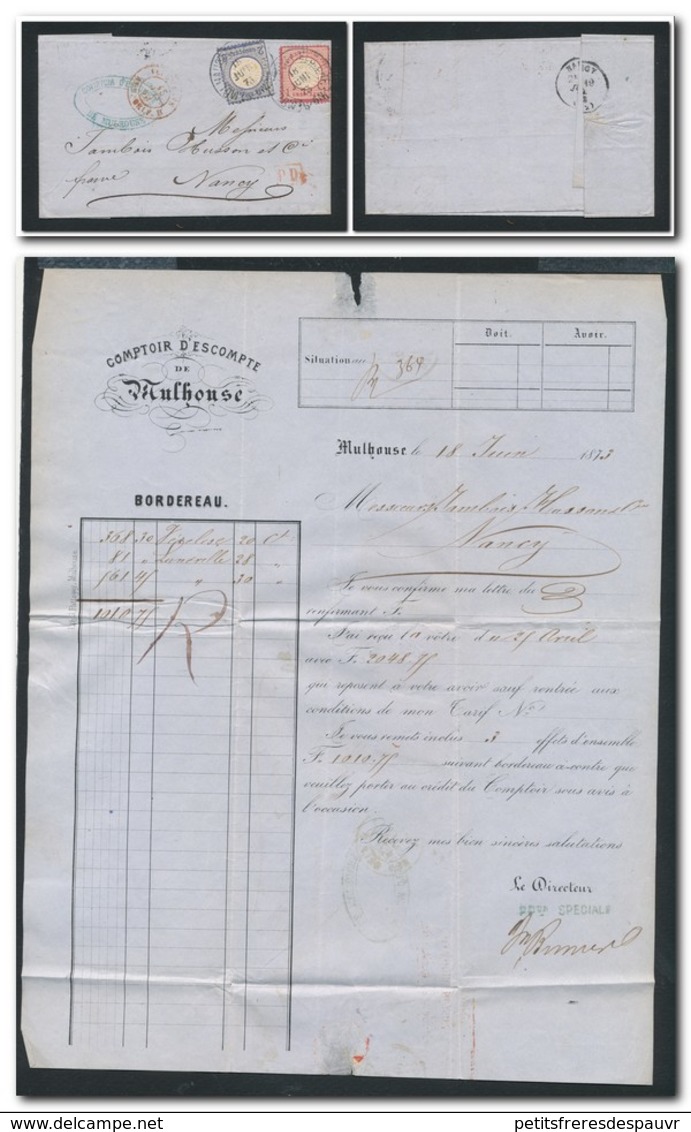 Messieurs
Jambois Husson et Cie
Nancy
P.D.
NANCY
COMPTOIR D'ESCOMPTE
DE
Mulhouse
Doit.
Avoir.
Situation
364
Mulhouse le 18 Juin 1873
BORDEREAU.
Messieurs Jambois, Husson & Cie
Nancy
368 30 20 Ct
81 " Luneville 28 "
561 45 " 30 "
1010 75
Je vous confirme ma lettre du
confirmant F.
J'ai reçu la vôtre du 25 Avril
avec F. 2048.75
qui reposent à votre avoir sauf rentrée aux
conditions de mon Tarif No
Je vous remets inclus 3 effets d'ensemble
F. 1010.75 suivant bordereau ci-contre que
veuillez porter au crédit du Comptoir sous avis à
l'occasion.
Recevez mes bien sincères salutations
Le Directeur
SPECIALE
delcampe.net
petitsfreresdespauvr